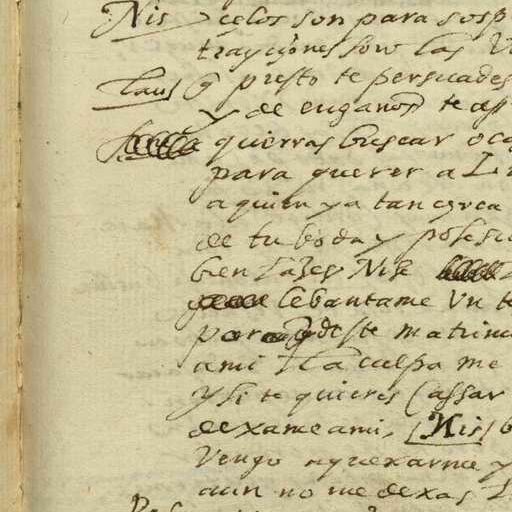 Nis celos son para sosp
trayciones son las V
Laus q presto te persuades
y de enganos te
quierras buscar oca
para querer a Li
a quien ya tan cerca
de tu boda y posesi
bien hazes Nise
lebantame Un te
para q deste matrimo
a mi la culpa me
y si te quieres cassar
dexame a mi, Nis
Vengo a quexarme y
aun no me dexas